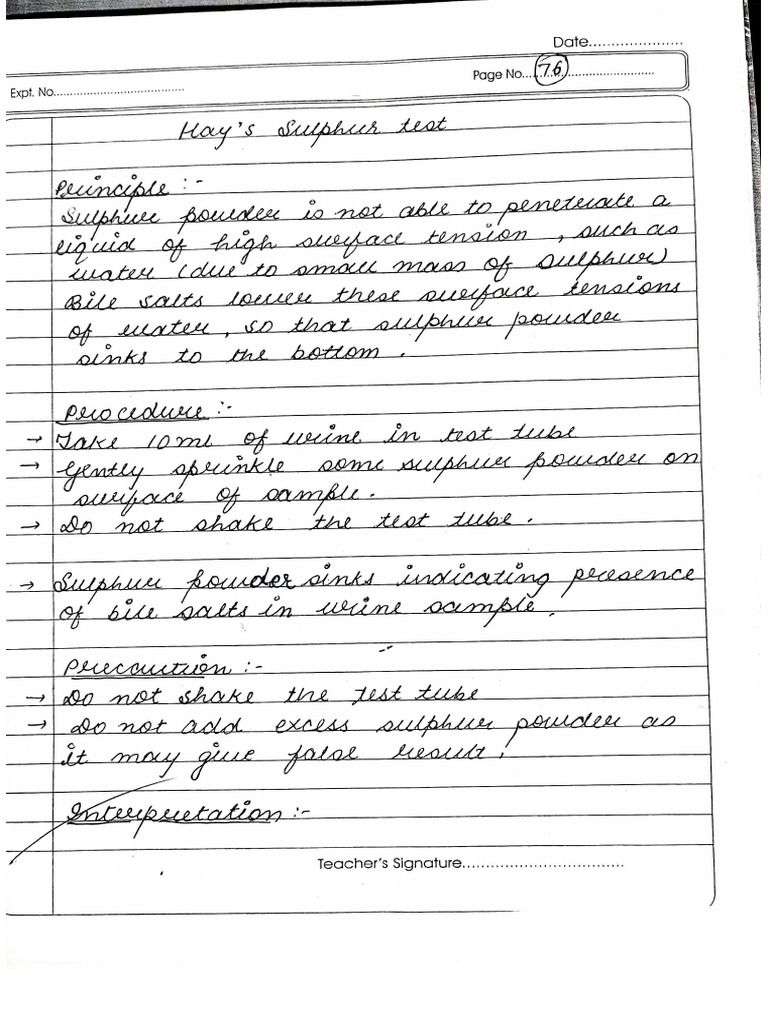 Date.....................
Page No.....76...........................
Expt. No.......................................
Hay's Sulphur test
Principle :-
Sulphur powder is not able to penetrate a
liquid of high surface tension , such as
water (due to small mass of sulphur)
Bile salts lower these surface tensions
of water, so that sulphur powder
sinks to the bottom .
Procedure :-
→ Take 10ml of urine in test tube
→ Gently sprinkle some sulphur powder on
surface of sample.
→ Do not shake the test tube .
→ Sulphur powder sinks indicating presence
of bile salts in urine sample .
Precaution :-
→ Do not shake the test tube
→ Do not add excess sulphur powder as
it may give false result .
Interpretation :-
Teacher's Signature.................................